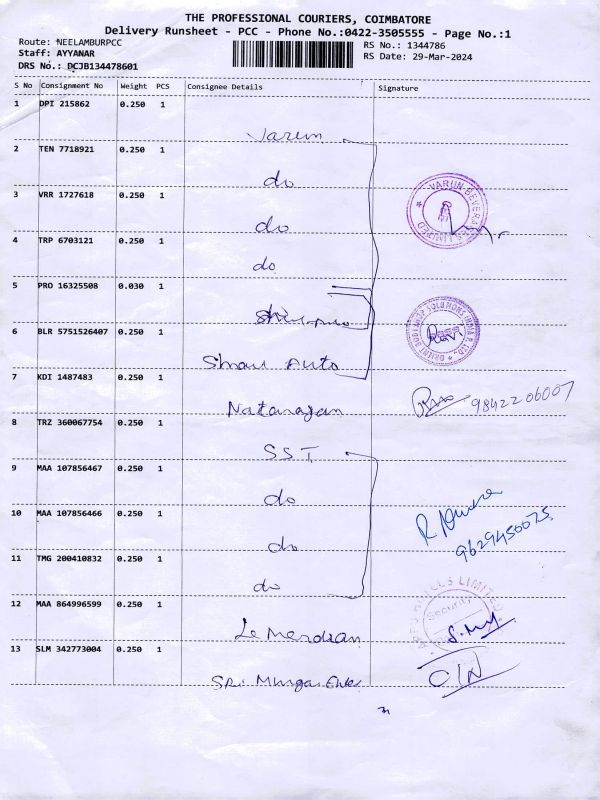 THE PROFESSIONAL COURIERS, COIMBATORE
Delivery Runsheet - PCC - Phone No.:0422-3505555 - Page No.:1
Route: NEELAMBURPCC
RS No.: 1344786
Staff: AYYANAR
RS Date: 29-Mar-2024
DRS No.: DCJB134478601
S No Consignment No Weight PCS Consignee Details Signature
1 DPI 215862 0.250 1
Varun
2 TEN 7718921 0.250 1
do
3 VRR 1727618 0.250 1
VARUN BEVERAGES LIMITED
do
4 TRP 6703121 0.250 1
do
5 PRO 16325508 0.030 1
6 BLR 5751526407 0.250 1
ORIENT BODYSHOP SOLUTIONS INDIA P. LTD.
Auto
7 KDI 1487483 0.250 1
Natarajan
9842206007
8 TRZ 360067754 0.250 1
SST
9 MAA 107856467 0.250 1
do
10 MAA 107856466 0.250 1
do
9629450075
11 TMG 200410832 0.250 1
do
12 MAA 864996599 0.250 1
LIMITED
Security
Le Meridian
13 SLM 342773004 0.250 1
Sri Muruga